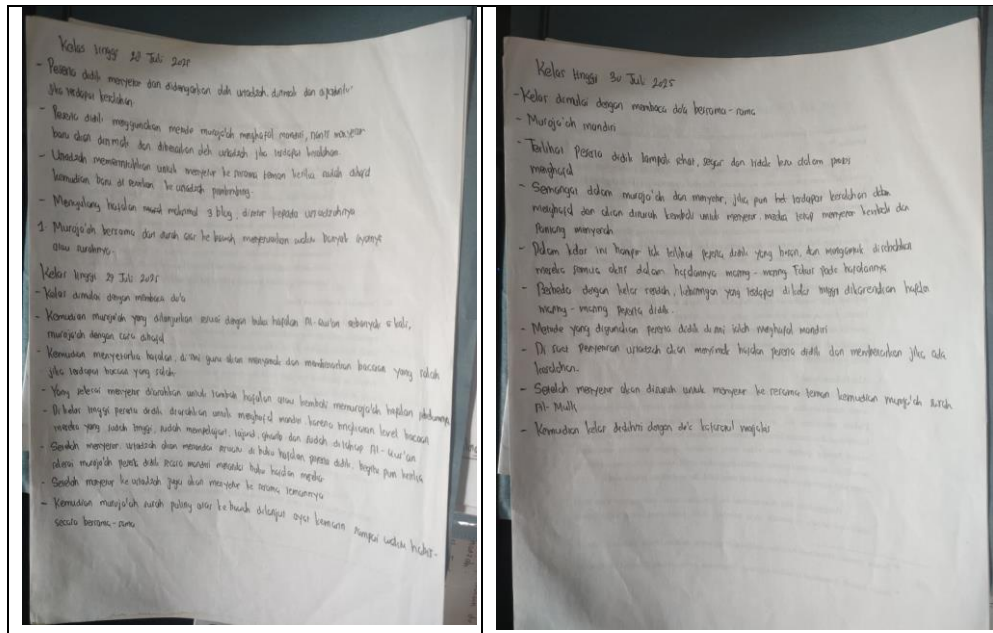 Kelas tinggi 28 Juli 2025
- Peserta didik menyetor dan didengarkan oleh ustadzah disimak dan
jika terdapat kesalahan.
- Peserta didik menggunakan metode muroja'ah menghafal mandiri, nanti menyetor
baru akan disimak dan dibenarkan oleh ustadzah jika terdapat kesalahan.
- Ustadzah memerintahkan untuk menyetor ke sesama teman ketika sudah
kemudian baru di setorkan ke ustadzah pembimbing.
- Mengulang hafalan maksimal 3 blog, disetor kepada ustadzahnya
1. Muroja'ah bersama dari surah ke bawah menyesuaikan waktu banyak ayatnya
atau surahnya.
Kelas tinggi 29 Juli 2025
- Kelas dimulai dengan membaca do'a
- Kemudian muroja'ah yang dilanjutkan sesuai dengan buku hafalan Al-Qur'an sebanyak 5 kali,
muroja'ah dengan cara
- Kemudian menyetorkan hafalan, di sini guru akan menyimak dan membenarkan bacaan yang salah
jika terdapat bacaan yang salah
- Yang selesai menyetor diarahkan untuk tambah hafalan atau kembali memuroja'ah hafalan
- Di kelas tinggi peserta didik diarahkan untuk menghafal mandiri karena tingkatan level bacaan
mereka yang sudah tinggi, sudah mempelajari tajwid, gharib dan sudah di tahap Al-Qur'an
- Setelah menyetor, ustadzah akan menandai sesuatu di buku hafalan peserta didik, begitu pun ketika
selesai muroja'ah peserta didik secara mandiri menandai buku hafalan mereka
- Setelah menyetor ke ustadzah juga akan menyetor ke sesama temannya
- Kemudian muroja'ah surah paling atas ke bawah dilanjut ayat kemarin sampai waktu habis
secara bersama-sama
Kelas tinggi 30 Juli 2025
- Kelas dimulai dengan membaca do'a bersama-sama
- Muroja'ah mandiri
- Terlihat peserta didik tampak sehat, segar dan tidak lesu dalam proses
menghafal
- Semangat dalam muroja'ah dan menyetor, jika pun terdapat kesalahan dalam
menghafal dan akan disuruh kembali untuk menyetor, mereka tetap menyetor kembali dan
pantang menyerah
- Dalam kelas ini hampir tak terlihat peserta didik yang bosan, dan mengantuk disebabkan
mereka semua aktif dalam hafalannya masing-masing fokus pada hafalannya
- Berbeda dengan kelas rendah, yang terdapat di kelas tinggi dikarenakan hafalan
masing-masing peserta didik.
- Metode yang digunakan peserta didik di sini ialah menghafal mandiri
- Di saat penyetoran ustadzah akan menyimak hafalan peserta didik dan membenarkan jika ada
kesalahan.
- Setelah menyetor akan disuruh untuk menyetor ke sesama teman kemudian muroja'ah surah
Al-Mulk
- Kemudian kelas diakhiri dengan do'a kafaratul majelis